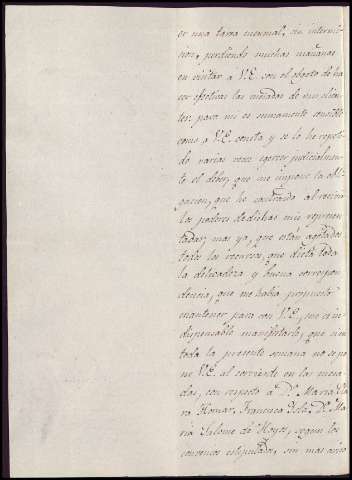 er una tarea mensual, sin intermi-
sion, perdiendo muchas mañanas
en visitar a V.E. con el objeto de ha-
cer efectivas las mesadas de mis clien-
tes: para mi es sumamente sensible
como a V.E. consta y se lo he repeti-
do varias veces egercer judicialmen-
te el deber, que me impone la obli-
gacion, que he contraido al recivir
los poderes de dichas mis represen-
tadas; mas ya, que estan agotados
todos los recursos, que dicta toda
la delicadeza y buena correspon-
dencia, que me habia propuesto
mantener para con V.E., me es in-
dispensable manifestarle, que si en
toda la presente semana no se po-
ne V.E. al corriente en las mesa-
das, con respecto a Dª. Maria
Homar, Francisca Dª. Ma-
ria Salome de Hoyos, segun los
convenios estipulados, sin mas aviso